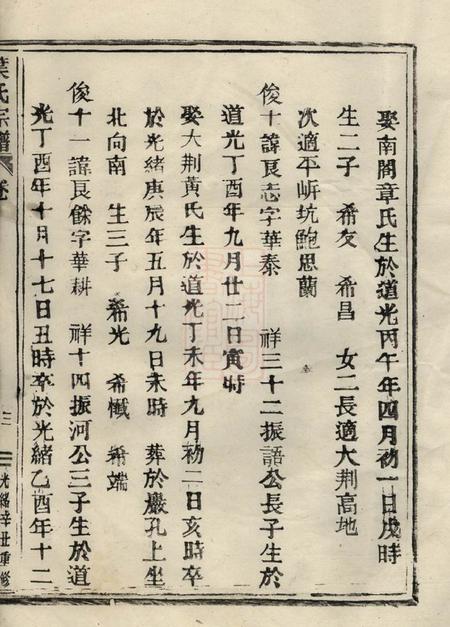 娶南閣章氏生於道光丙午年四月初一日戌時
生二子 希友 希昌 女二長適大荆高地
次適平㟁坑鮑思蘭
俊十諱良志字華泰 祥三十二振語公長子生於
道光丁酉年九月廿二日寅時
娶大荆黃氏生於道光丁未年九月初二日亥時卒
於光緒庚辰年五月十九日未時 葬於巖孔上坐
北向南 生三子 希光 希懺 希端
俊十一諱良餘字華耕 祥十四振河公三子生於道
光丁酉年十月十七日丑時卒於光緒乙酉年十二
葉氏宗譜 卷 三 光緒辛丑重修